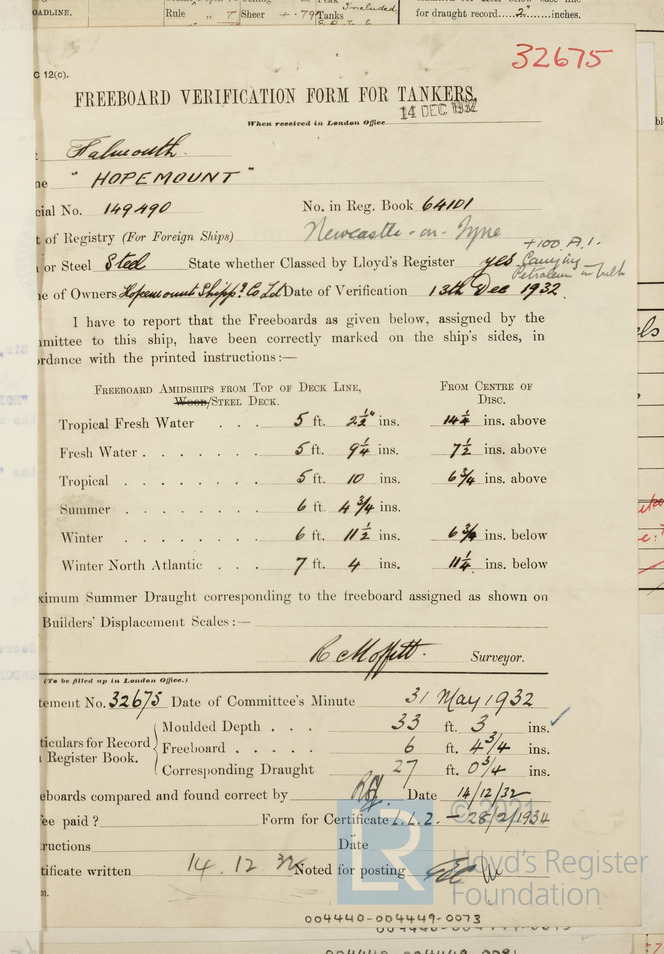 OADLINE.
Rule „ 7 Sheer + .79 Tanks Included
for draught record.....2"......inches.
32675
C 12(c).
FREEBOARD VERIFICATION FORM FOR TANKERS.
When received in London Office 14 DEC 1932
t Falmouth.
me "HOPEMOUNT"
cial No. 149490 No. in Reg. Book 64101
t of Registry (For Foreign Ships) Newcastle-on-Tyne
+100 A.1.
n or Steel Steel State whether Classed by Lloyd's Register yes Carrying
Petroleum in bulk
me of Owners Hopemount Shipp? Co Ltd Date of Verification 13th Dec 1932.
I have to report that the Freeboards as given below, assigned by the
mmittee to this ship, have been correctly marked on the ship's sides, in
rdance with the printed instructions:—
FREEBOARD AMIDSHIPS FROM TOP OF DECK LINE, FROM CENTRE OF
WOOD/STEEL DECK. DISC.
Tropical Fresh Water . . . 5 ft. 2½" ins. 14¼ ins. above
Fresh Water . . . . . . . 5 ft. 9¼ ins. 7½ ins. above
Tropical . . . . . . . . 5 ft. 10 ins. 6¾ ins. above
Summer . . . . . . . . 6 ft. 4¾ ins.
Winter . . . . . . . . 6 ft. 11½ ins. 6¾ ins. below
Winter North Atlantic . . . 7 ft. 4 ins. 11¼ ins. below
ximum Summer Draught corresponding to the freeboard assigned as shown on
Builders' Displacement Scales:—
R Moffett. Surveyor.
(To be filled up in London Office.)
tement No. 32675 Date of Committee's Minute 31 May 1932
Moulded Depth . . . 33 ft. 3 ins.
ticulars for Record
Freeboard . . . . . 6 ft. 4¾ ins.
Register Book.
Corresponding Draught 27 ft. 0¾ ins.
eboards compared and found correct by Date 14/12/32
ee paid? Form for Certificate L.L.2. — 28/2/1934
ructions Date
tificate written 14.12 32 Noted for posting
31.
LR
© 2021
Lloyd's Register
Foundation
004440-004449-0073